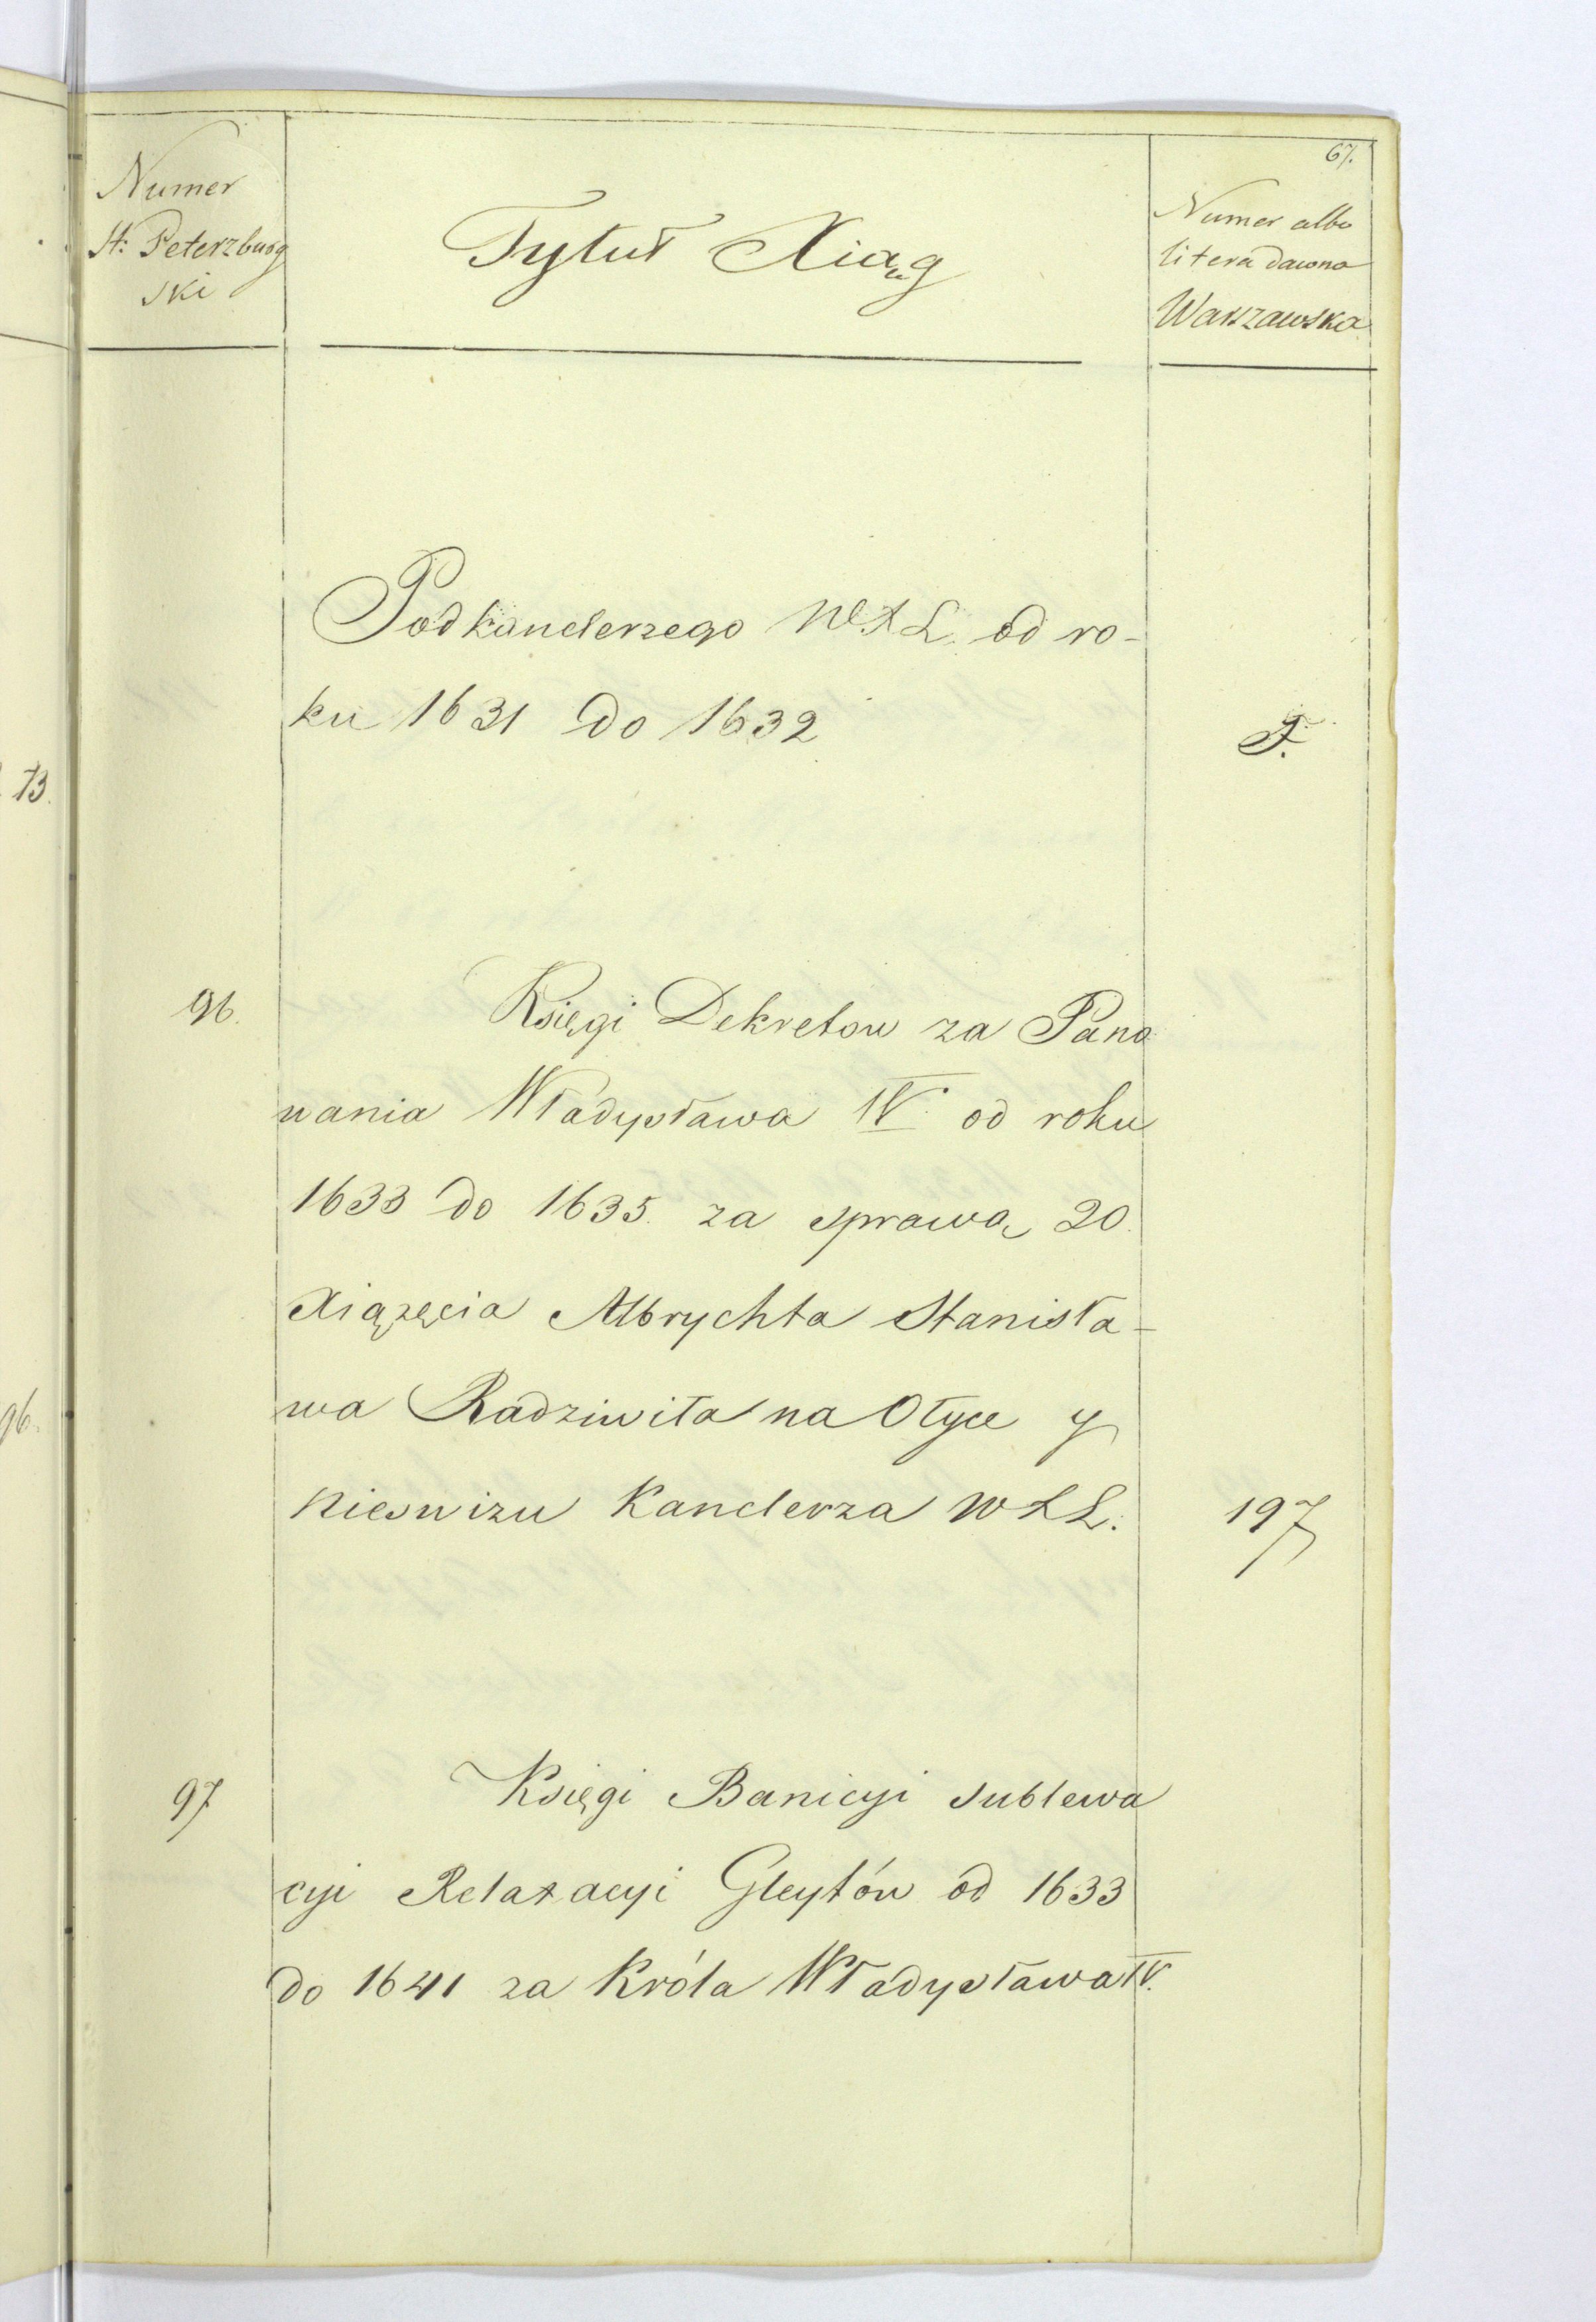 67.
Numer
St: Peterzburg
ski
Tytuł Xiąg
Numer albo
litera dawna
Warszawska
Podkanclerzego W.X.L. od ro-
ku 1631 do 1632
73.
96.
Księgi Dekretow za Pano
wania Władysława IV. od roku
1633 do 1635. za sprawą 20.
Xiążęcia Albrychta Stanisła-
wa Radziwiła na Ołyce y
Nieswizu Kanclerza W X L.
197
96.
97
Księgi Banicyi Sublewa
cyi Relaxacyi Gleytów od 1633
do 1641 za Króla Władysława IV.